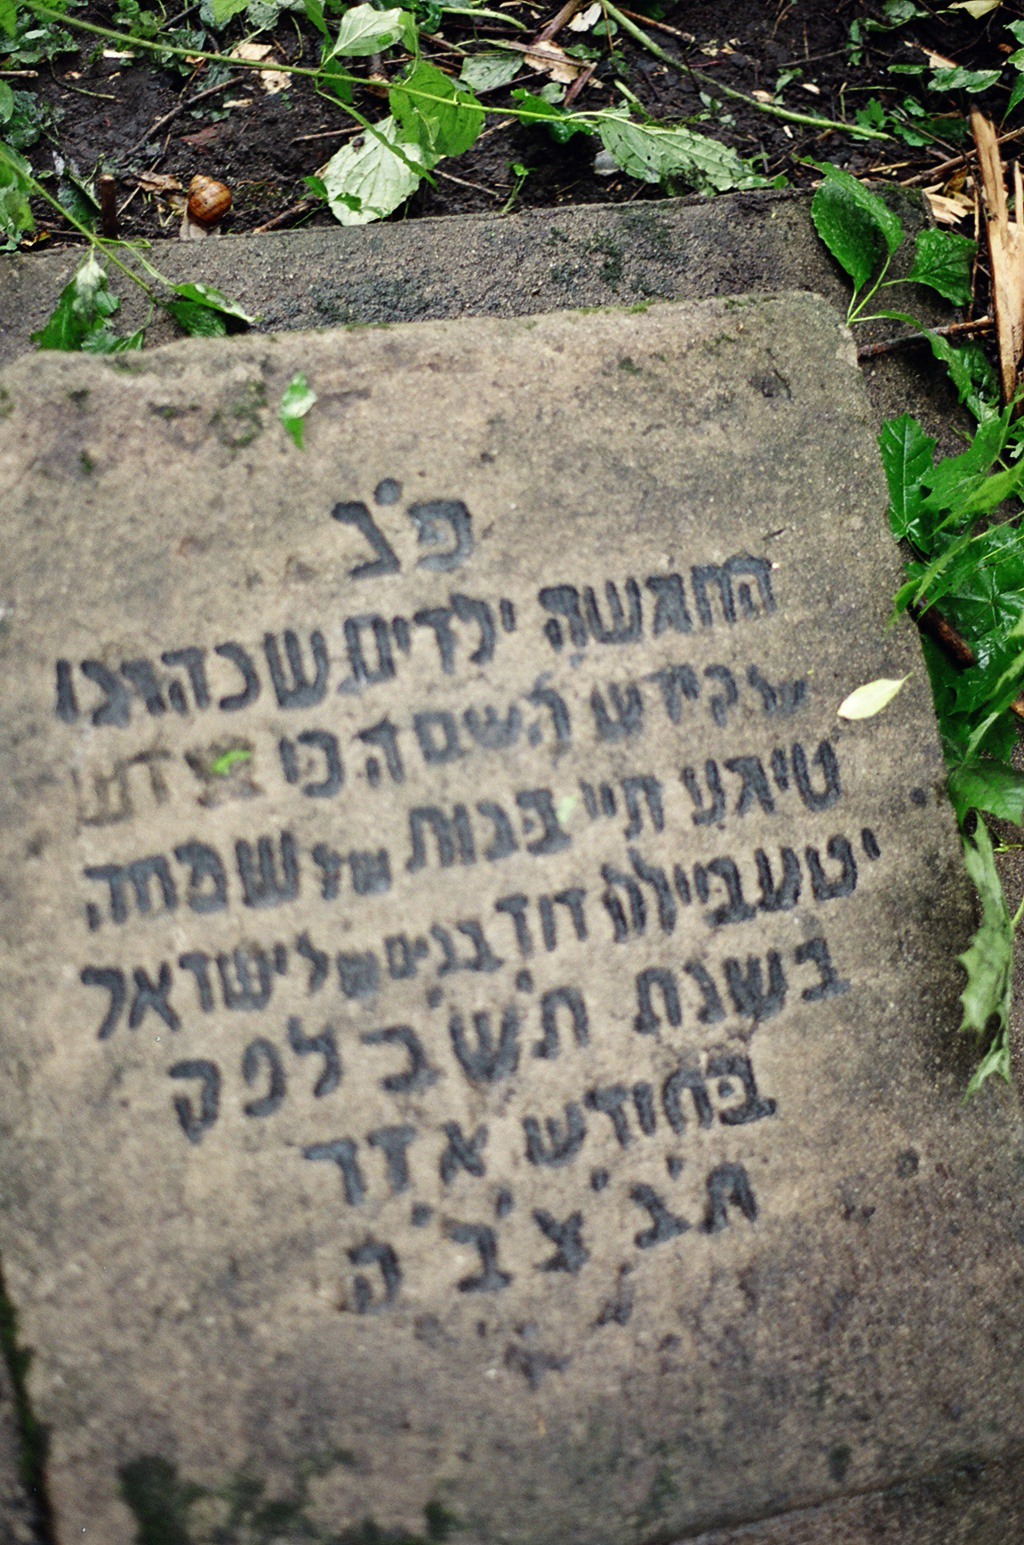 פ״נ
החמשה ילדים שנהרגו
על קידוש השם ה״נ
טויבע חיי׳ בנות של שמחה
יטע ביילה דוד בנים של ישראל
בשנת תש״ב לפק
בחודש אדר
ת׳נ׳צ׳ב׳ה